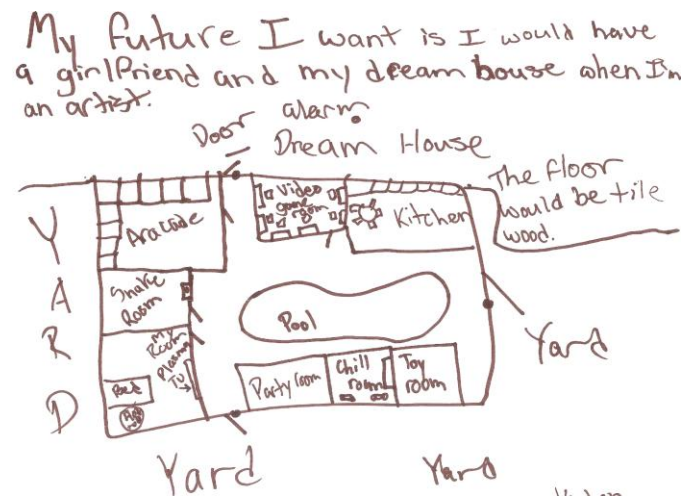 My future I want is I would have
a girlfriend and my dream house when I'm
an artist.
Door alarm
Dream House
The floor
would be tile
wood.
Video
game
room
Kitchen
Aracade
YARD
Snake
Room
My
Room
Plasma
TV
Bed
Pool
Party room
Chill
room
Toy
room
Yard
Yard
Yard